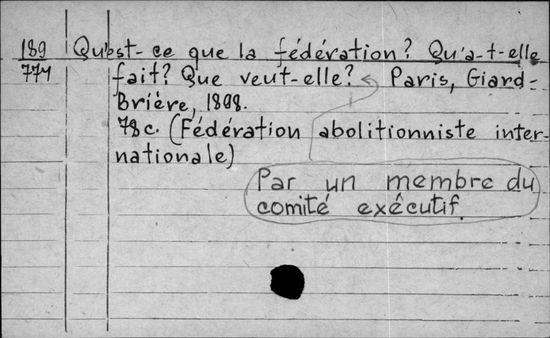 189 Qu'est-ce que la fédération? Qu'a-t-elle
774 fait? Que veut-elle? Paris, Giard-
Brière, 1898.
78 c. (Fédération abolitionniste inter-
nationale)
Par un membre du
comité exêcutif.